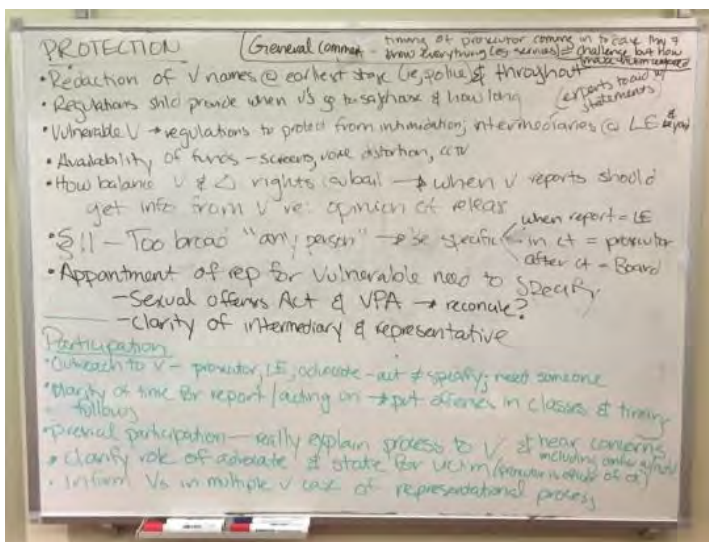 PROTECTION
General comment - timing of prosecutor coming in to case they ≠
know everything (eg services) = challenge but how
make victim
• Redaction of V names @ earliest stage (ie, police) & throughout
• Regulations shld provide when V's go to safehouse & how long
(experts to aid w/
statements)
• Vulnerable V → regulations to protect from intimidation; intermediaries @ LE & beyond
• Availability of funds - screens, voice distortion, CCTV
• How balance V & Δ rights bail → when V reports should
get info from V re: opinion of releas
• § 11 - Too broad "any person" → be specific
when report = LE
in ct = prosecutor
after ct = Board
• Appointment of rep for Vulnerable need to specify.
- Sexual offenses Act & VPA → reconcile?
- clarity of intermediary & representative
Participation
• Outreach to V - prosecutor, LE, advocate - act ≠ specify; need someone
• Clarity of time for report / acting on → put offenses in classes & timing
follows
• Pretrial participation - really explain process to V & hear concerns
including
• Clarify role of advocate & state for victim (prosecutor is officer of ct)
• Inform Vs in multiple V case of representational process